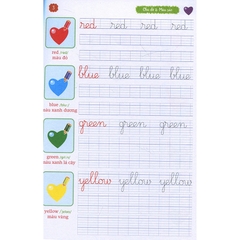 5
Chủ đề 3: Màu sắc
red red red red
red /red/
màu đỏ
blue blue blue blue
blue /bluː/
màu xanh dương
green green green
green /griːn/
màu xanh lá cây
yellow yellow yellow
yellow /ˈjeləʊ/
màu vàng